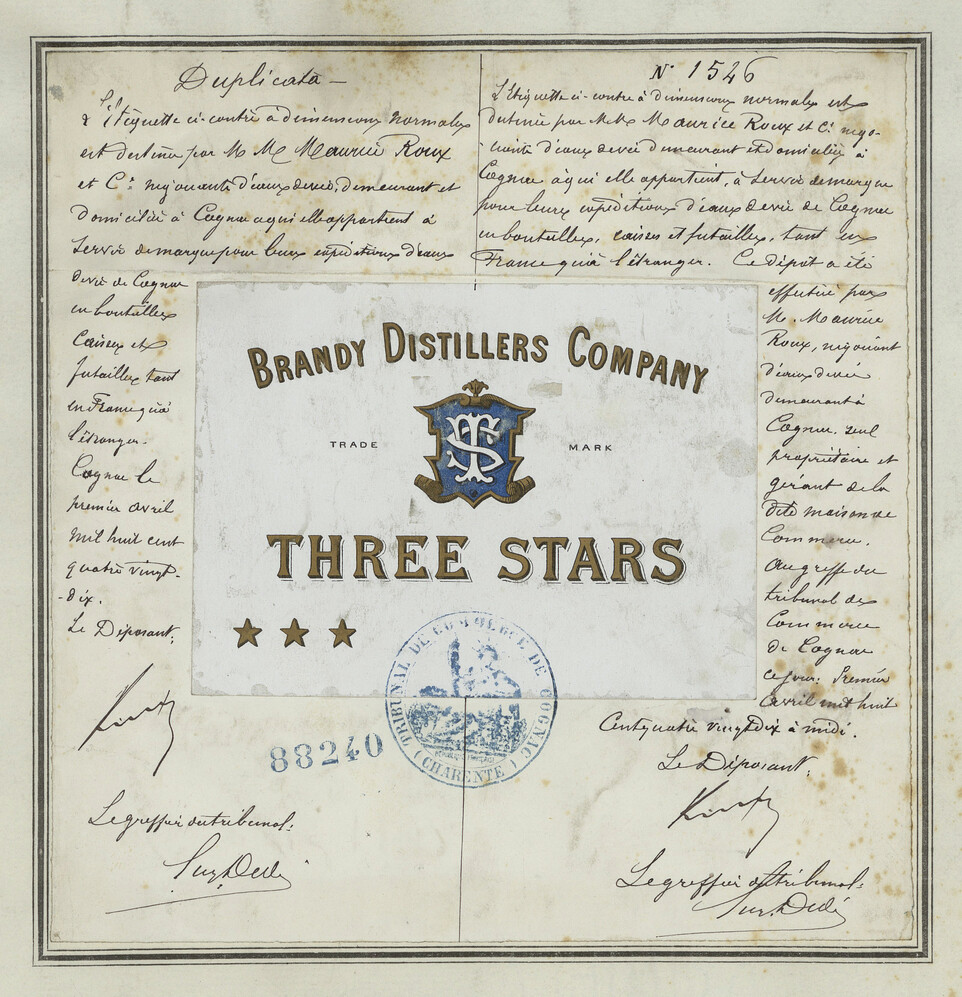 Duplicata
L'Etiquette ci-contre à dimensions normales
est destinée par M M Maurice Roux
et Cie négociants d'eaux de vie, demeurant et
domiciliés à Cognac à qui elle appartient à
servir de marque pour leurs expéditions d'eaux
de vie de Cognac
en bouteilles
caisses et
futailles tant
en France qu'à
l'étranger.
Cognac le
premier avril
mil huit cent
quatre vingt-
-dix.
Le Déposant;
Le greffier du tribunal:
N° 1546
L'Etiquette ci-contre à dimensions normales est
destinée par M.M. Maurice Roux et Cie négo-
ciants d'eaux de vie demeurant et domiciliés à
Cognac à qui elle appartient, à servir de marque
pour leurs expéditions d'eaux de vie de Cognac
en bouteilles, caisses et futailles, tant en
France qu'à l'étranger. Ce dépôt a été
effectué par
M. Maurice
Roux, négociant
d'eaux de vie
demeurant à
Cognac. seul
propriétaire et
gérant de la
dite maison de
Commerce.
Au greffe du
tribunal de
Commerce
de Cognac
ce jour: Premier
Avril mil huit
Cent quatre vingt dix à midi.
Le Déposant;
Le greffier du tribunal:
BRANDY DISTILLERS COMPANY
TRADE MARK
TS
THREE STARS
TRIBUNAL DE COMMERCE DE COGNAC
(CHARENTE)
88240